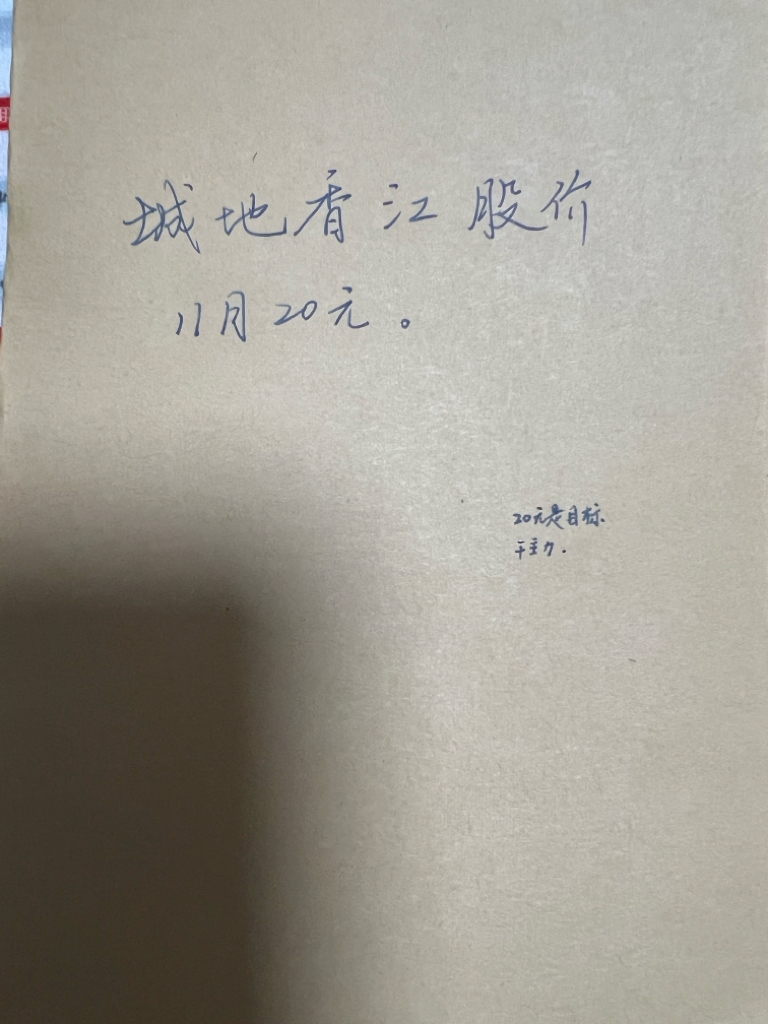 城地香江股价
11月20元。
20元是目标.